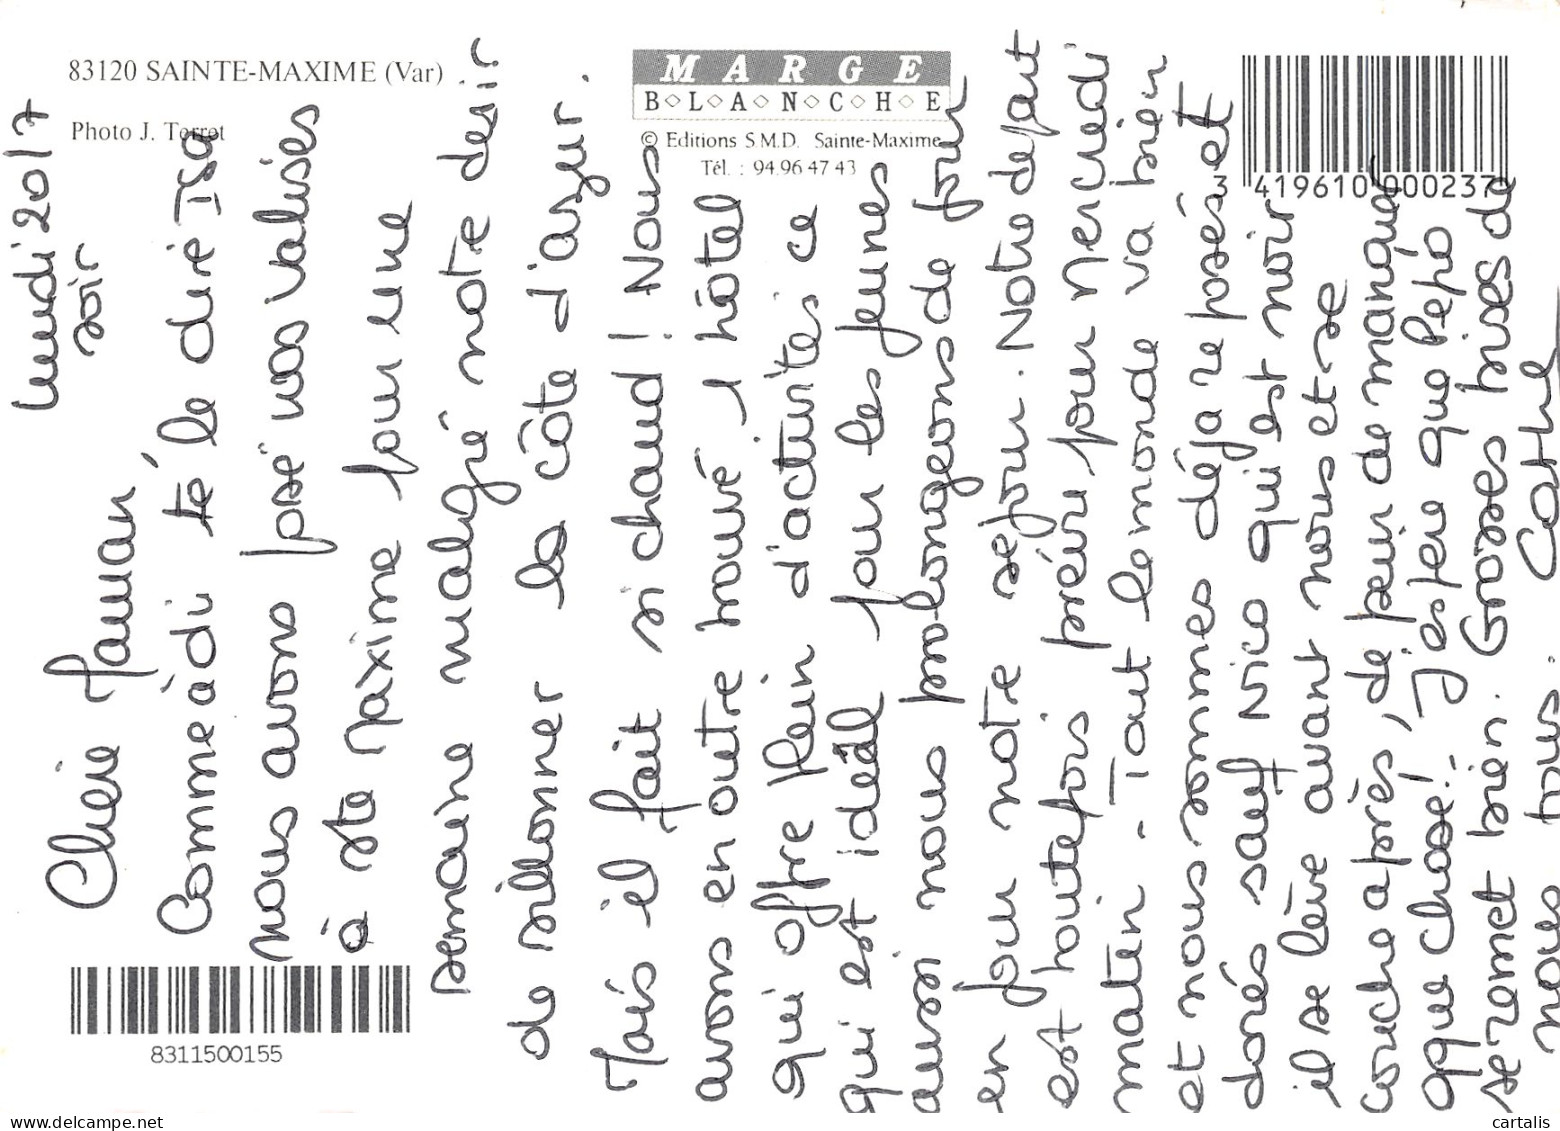 83120 SAINTE-MAXIME (Var)
Photo J. Terret
MARGE
BLANCHE
© Editions S.M.D. Sainte-Maxime
Tél. : 94.96 47 43
3 419610 000237
8311500155
lundi 20/7
soir
Chère Maman
Comme a dû té le dire Isa
nous avons posé nos valises
à Ste Maxime pour une
semaine malgré notre désir
de sillonner la côte d'azur.
Mais il fait si chaud ! Nous
avons en outre trouvé 1 hôtel
qui offre plein d'activités ce
qui est idéal pour les jeunes
aussi nous prolongeons de jour
en jour notre séjour. Notre départ
est toutefois prévu pour Mercredi
matin - Tout le monde va bien
et nous sommes déjà reposés et
dorés sauf Nico qui est noir
il se lève avant nous et se
couche après, de peur de manquer
qque chose ! J'espère que Pépé
se remet bien. Grosses bises de
nous tous. Cathe
delcampe.net
cartalis